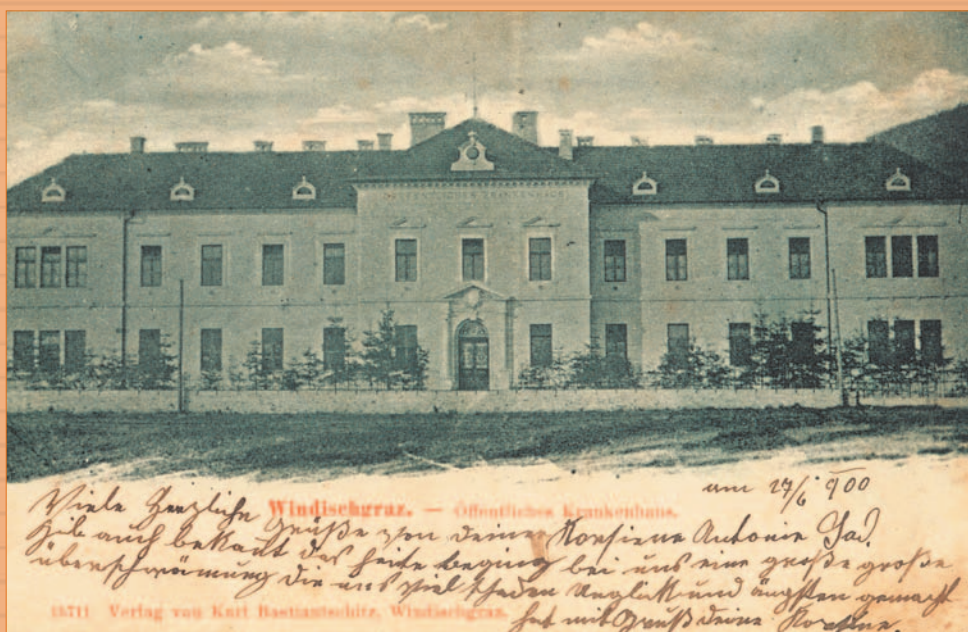 am 27/6 900
Windischgraz. — Öffentliches Krankenhaus.
Viele Herzliche Grüße von deiner Kousiene Antonie
Gib auch bekant das heite begining bei uns eine große große
überschwämung die uns viel schaden Unglück und ängsten gemacht
hat mit Gruß deine Kousine
15711 Verlag von Karl Bastiantschitz, Windischgraz.